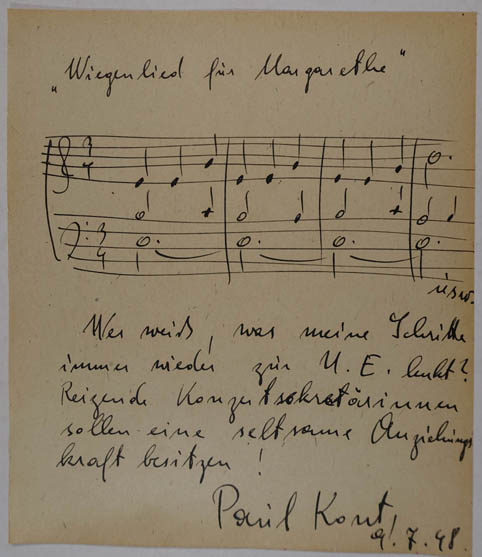 „Wiegenlied für Margarethe“
3
4
3
4
usw.
Wer weiß, was meine Schritte
immer wieder zur U. E. lenkt?
Reizende Konzertsekretärinnen
sollen eine seltsame Anziehungs
kraft besitzen!
Paul Kont
9. 7. 48.